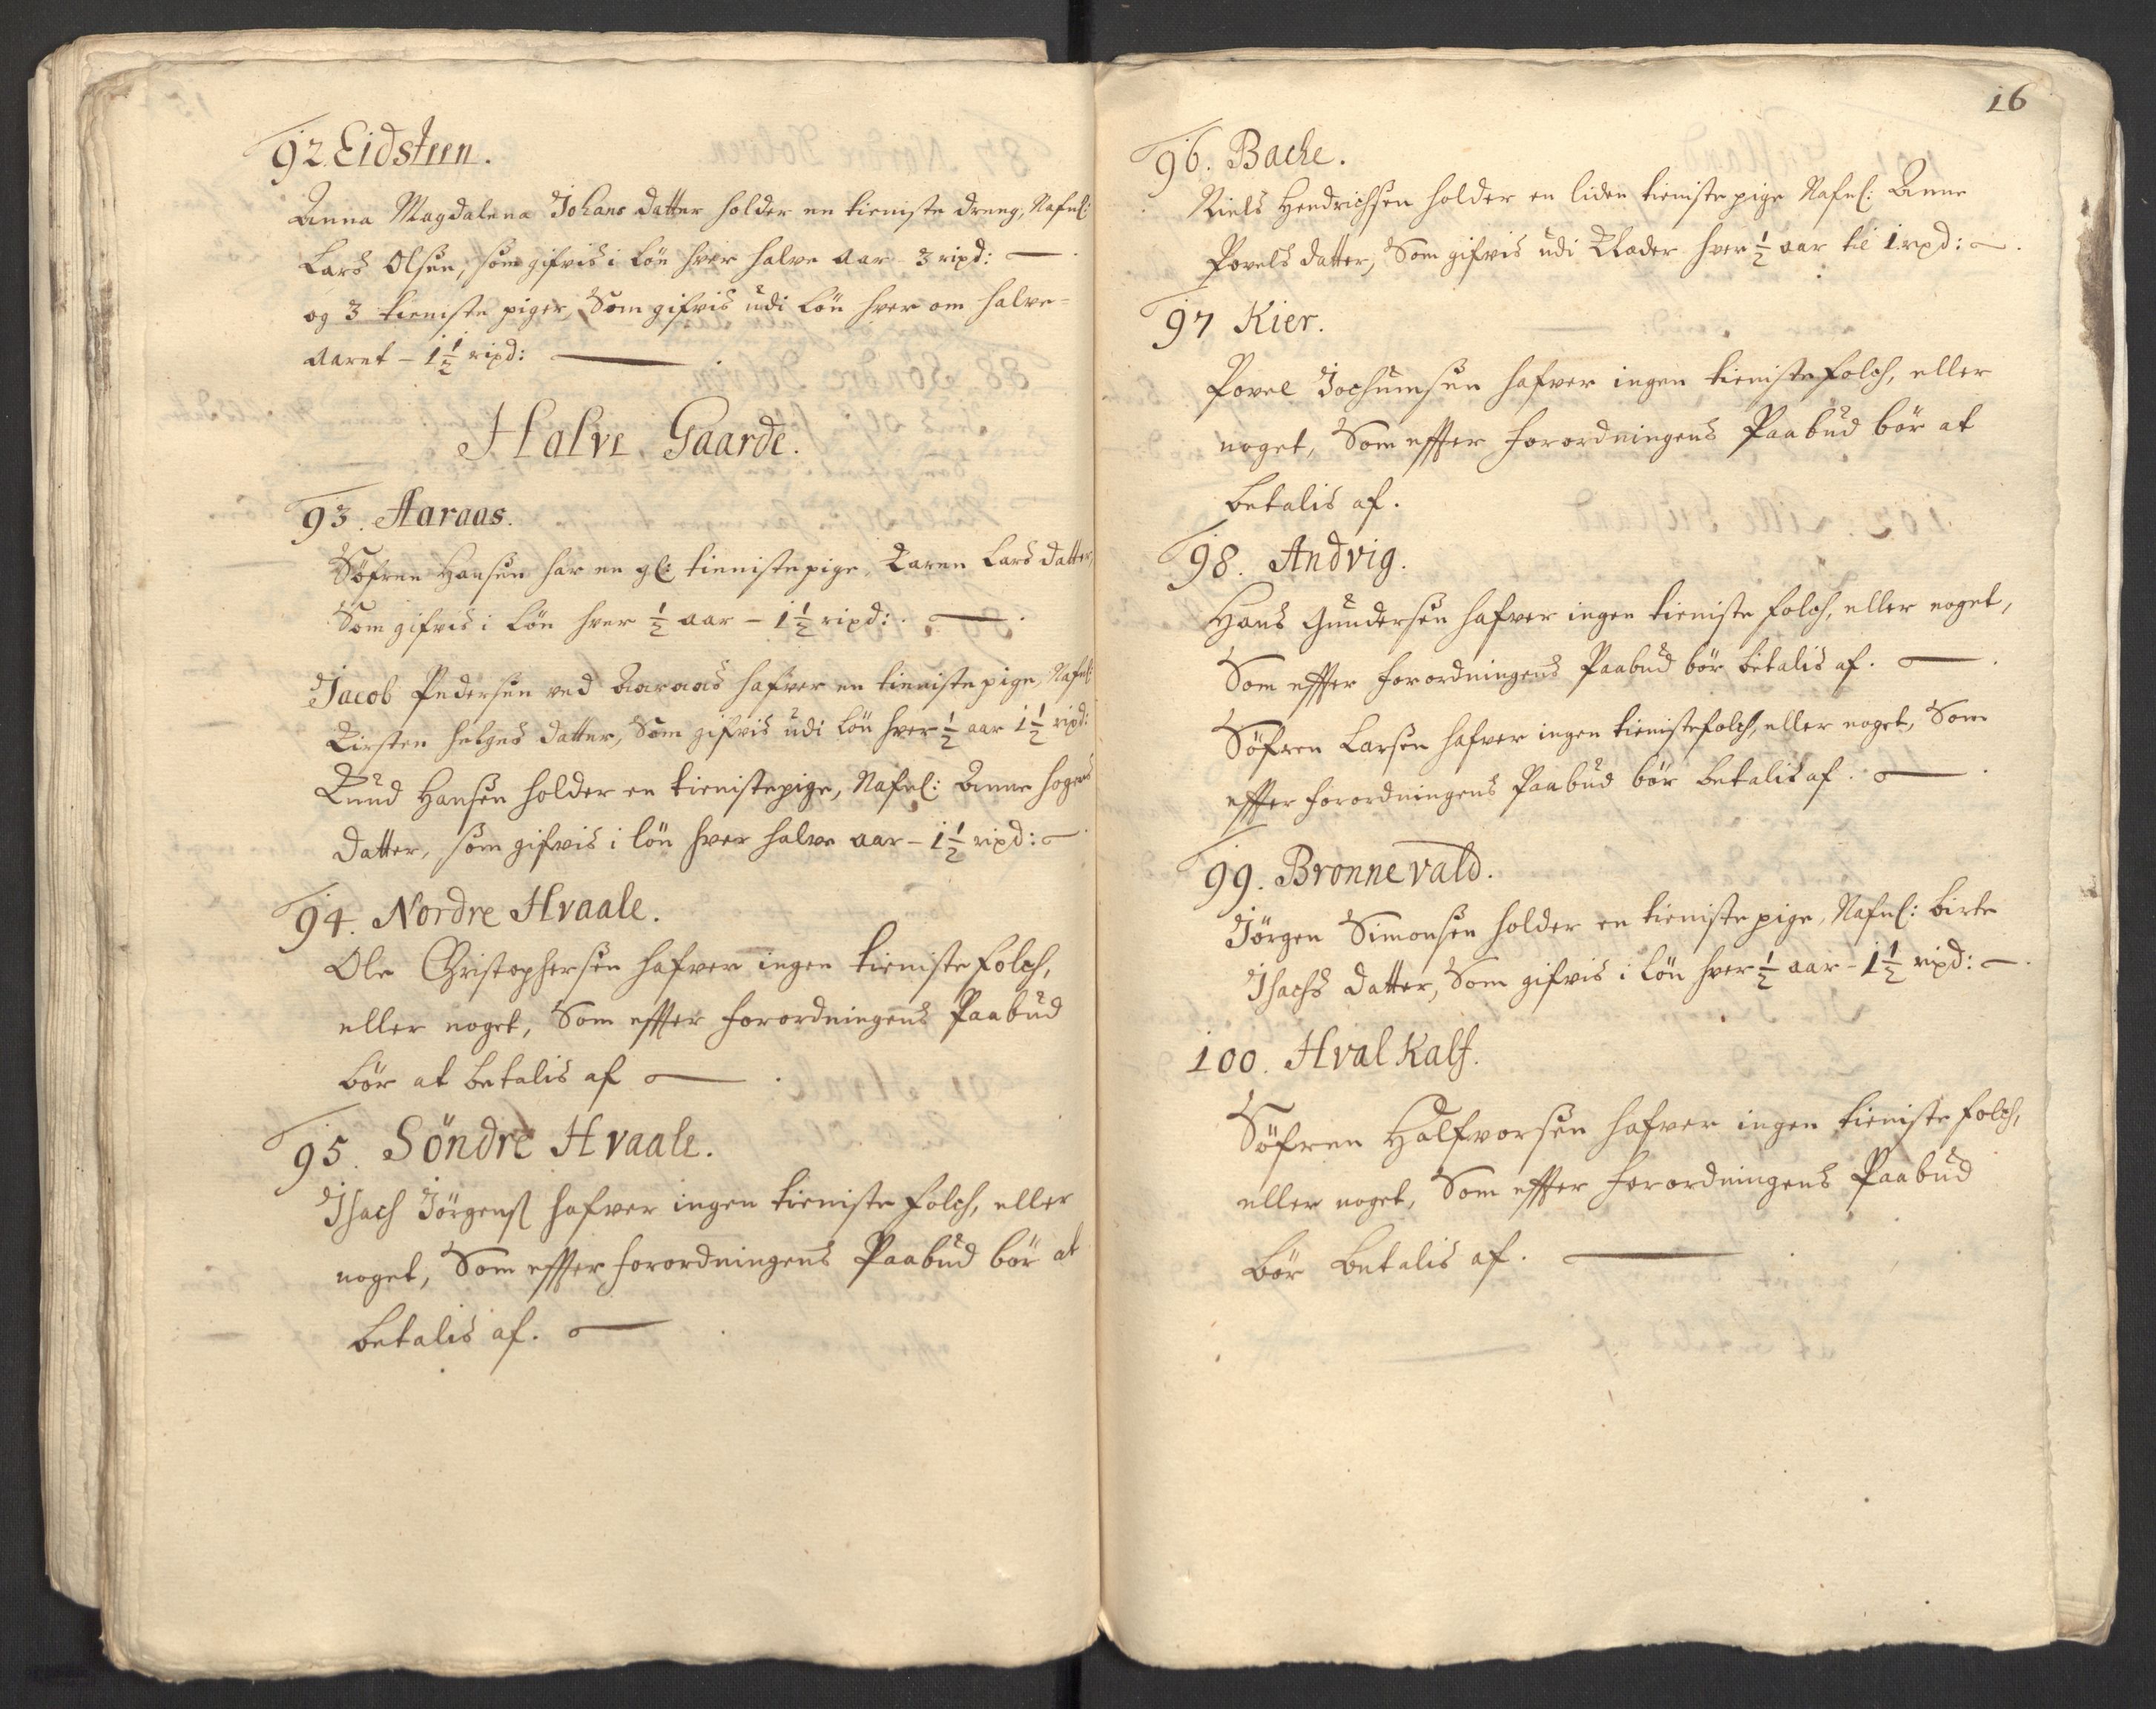 92. Eidsteen.
Anna Magdalena Johans datter holder en tieniste dreng, Nafnl:
Lars Olsen, som gifvis i Løn hver halve Aar - 3 rixd:
og 3 tieniste piger, Som gifvis udi Løn hver om halve=
Aaret - 1½ rixd:
Halve Gaarde.
93. Aaraas.
Søfren Hansen har en gl: tienistepige, Karen Lars datter,
Som gifvis i Løn hver ½ aar - 1½ rixd:
Jacob Pedersen ved Aaraas hafver en tienistepige, Nafnl:
Kirsten Helges datter, Som gifvis udi Løn hver ½ aar 1½ rixd:
Knud Hansen holder en tienistepige, Nafnl: Anne
datter, som gifvis i løn hver halve aar - 1½ rixd:
94. Nordre Hvaale.
Ole Christophersen hafver ingen tieniste folch,
eller noget, Som effter forordningens Paabud
bør at betalis af
95. Söndre Hvaale.
Isach Jørgens: hafver ingen tieniste folch, eller
noget, Som effter forordningens Paabud bør at
betalis af.
16
96. Bache.
Niels Hendrichsen holder en liden tieniste pige Nafnl: Anne
Povels datter, Som gifvis udi Klæder hver ½ aar til 1 rixd:
97 Kier.
Povel Jochumsen hafver ingen tienistefolch, eller
noget, Som effter forordningens Paabud bør at
betalis af.
98. Andvig.
Hans Gundersen hafver ingen tieniste folch, eller noget,
Som effter forordningens Paabud bør betalis af.
Søfren Larsen hafver ingen tienistefolch, eller noget, Som
effter forordningens Paabud bør betalis af.
99. Bronnevald.
Jørgen Simonsen holder en tieniste pige, Nafnl: Birte
Isachs datter, Som gifvis i Løn hver ½ aar - 1½ rixd:
100. Hval Kalf.
Søfren Halfvorsen hafver ingen tieniste folch,
eller noget, Som effter forordningens Paabud
bør betalis af.